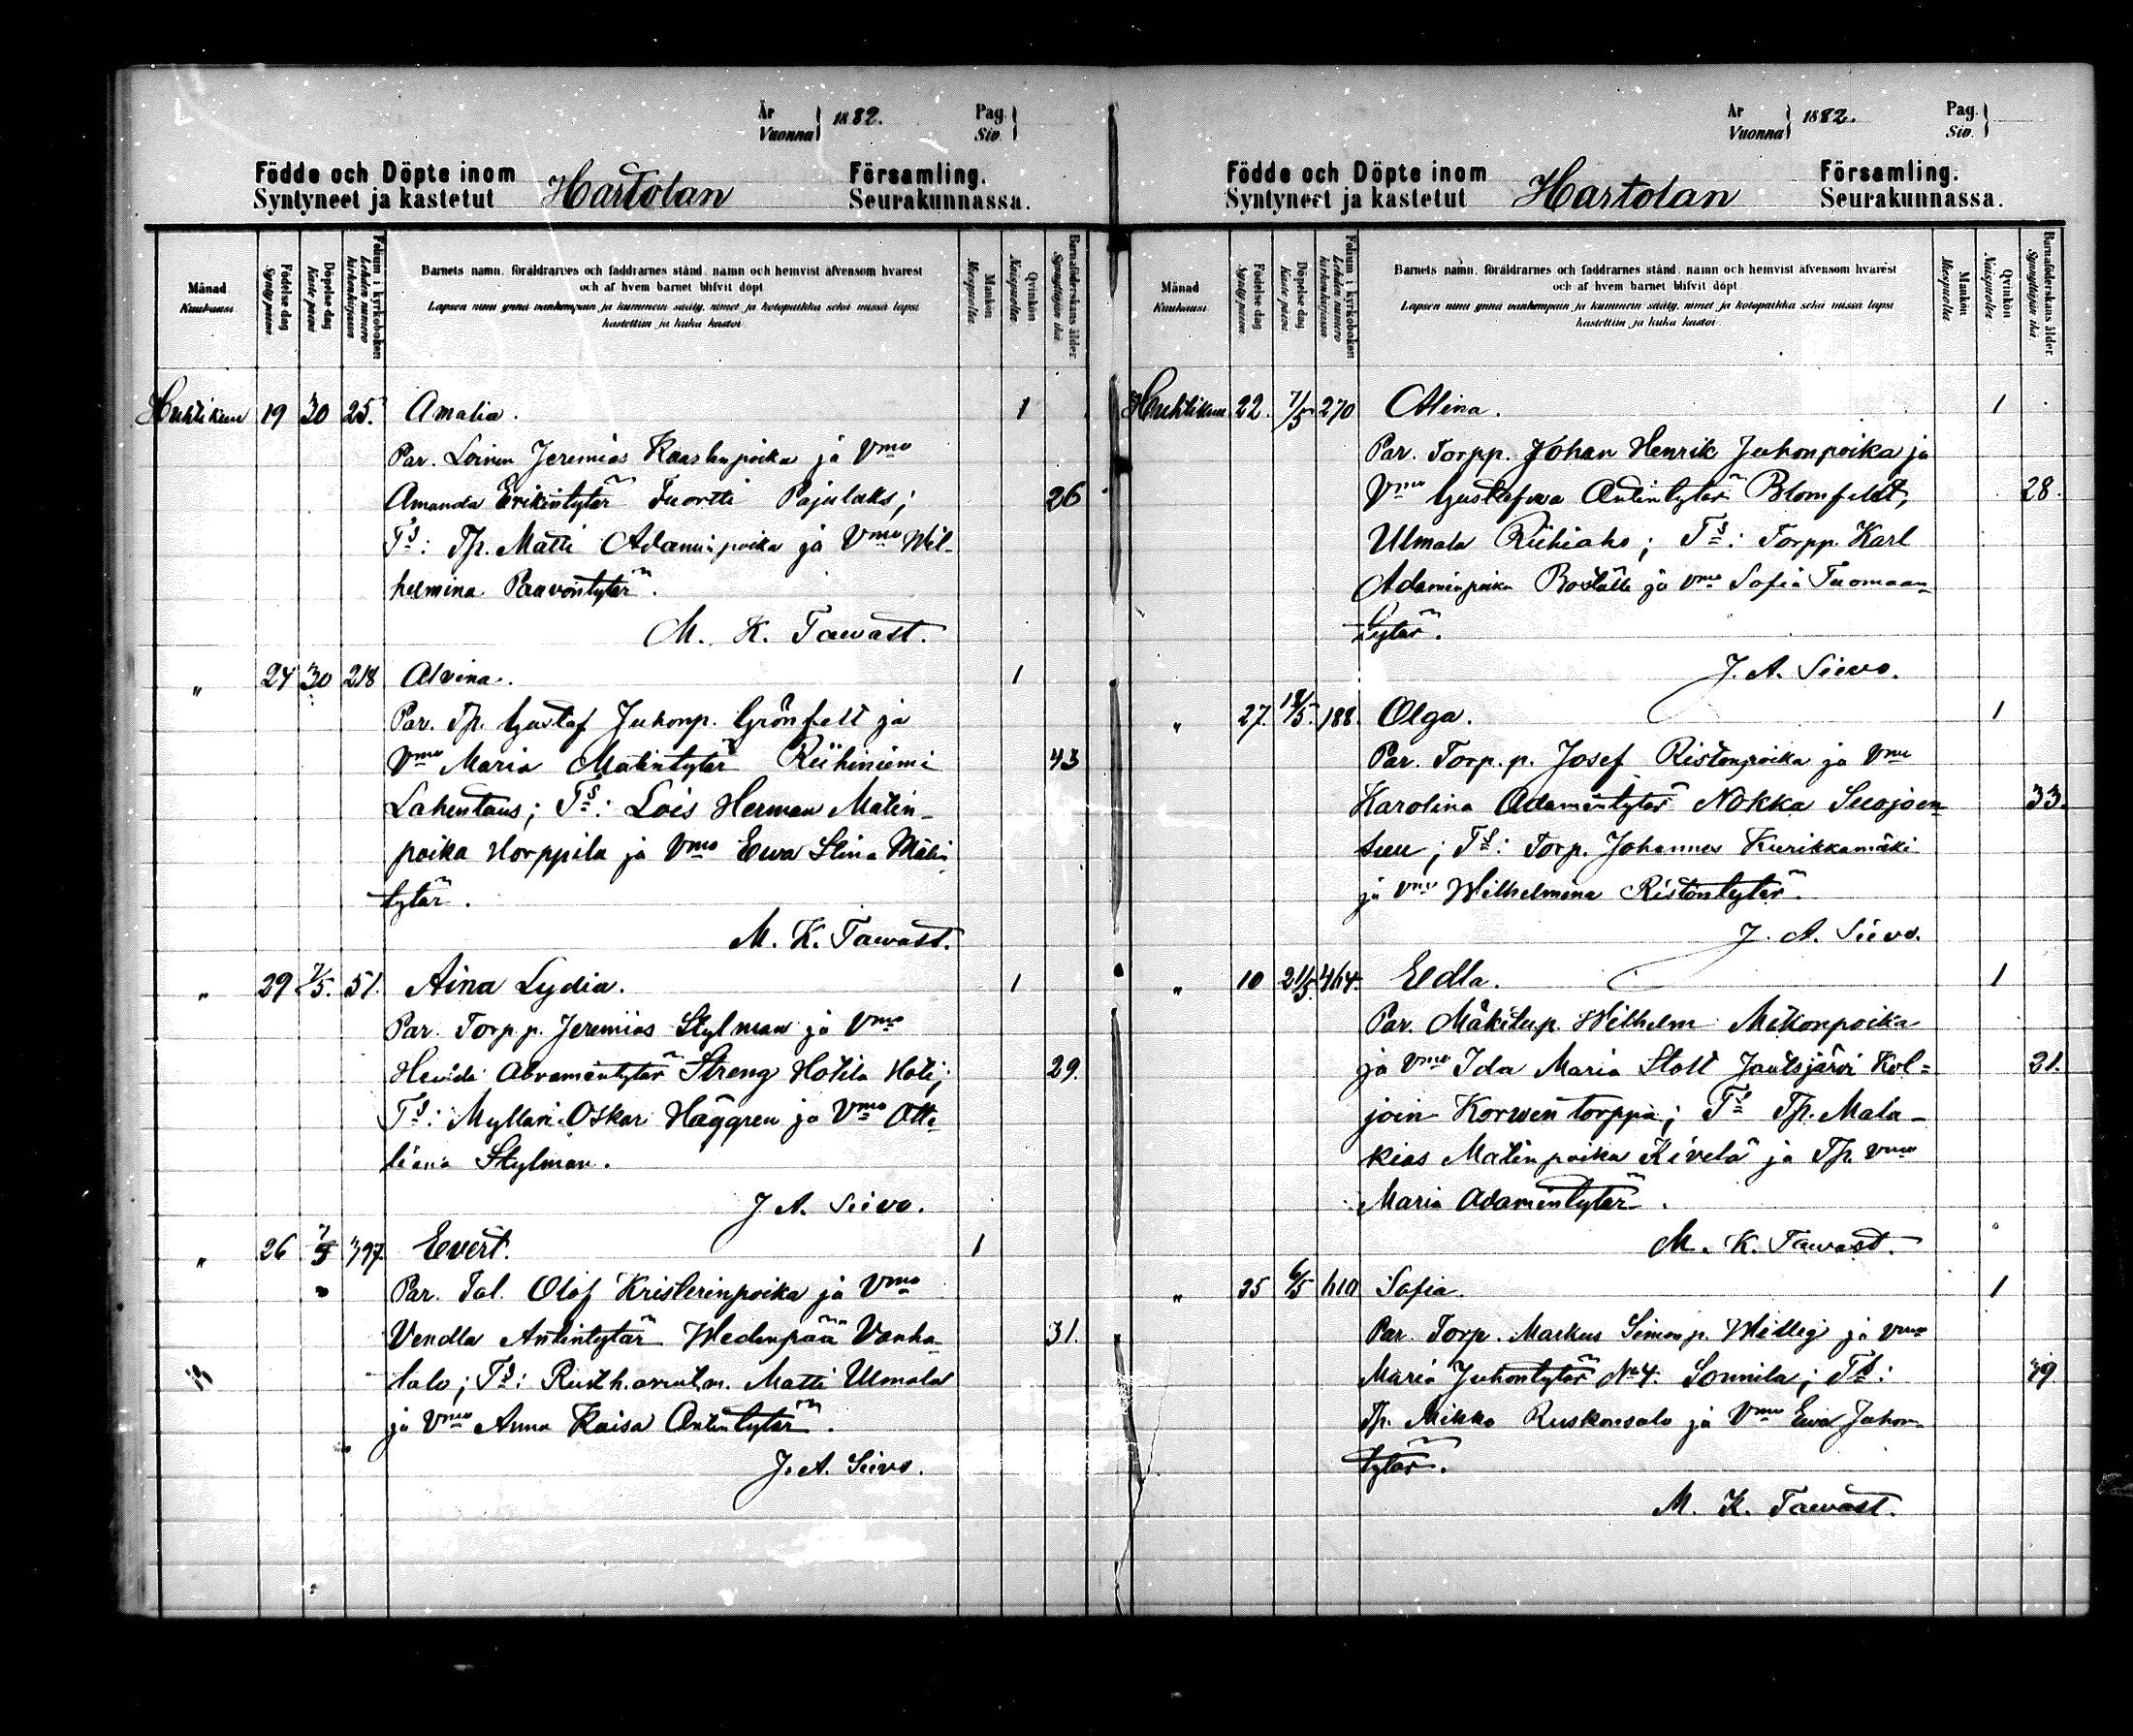 År
Vuonna } 1882.
Pag.
Siv. }
Födde och Döpte inom
Syntyneet ja kastetut Hartolan Församling.
Seurakunnassa.
Månad
Kuukausi
Födelse dag
Synty päivä
Döpelse dag
Kaste päivä
Folium i kyrkoboken
Lehden numero kirkonkirjassa
Barnets namn, föräldrarnes och faddrarnes stånd, namn och hemvist äfvensom hvarest
och af hvem barnet blifvit döpt
Lapsen nimi ynnä vanhempain ja kummein sääty, nimet ja kotopaikka sekä missä lapsi
kastettiin ja kuka kastoi.
Mankön
Miespuolia
Qvinkön
Naispuolia
Barnaföderskans ålder.
Synnyttäjän ikä.
Huhtikuu 19 30 25. Amalia. 1
Par. Loinen Jeremias Kaaslenpoika ja Vmo
Amanda Erikintytär Tuortti Pajulaks; 26
Ts: Tp. Matti Adaminpoika ja Vmo Wil-
helmina Paavontytär.
M. K. Tawast.
" 24 30 218 Alvina. 1
Par. Tp. Gustaf Juhonp. Grönfelt ja
Vmo Maria Matintytär Riihiniemi 43
Lahentaus; Ts: Lois Herman Matin-
poika Horppila ja Vmo Ewa Stina Matin
tytär.
M. K. Tawast.
" 29 7/5. 51. Aina Lydia. 1
Par. Torpp. Jeremias Stylman ja Vmo
Heilda Abramintytär Streng Hotila Hoti; 29.
Ts: Mylläri Oskar Häggren ja Vmo Otti-
liana Stylman.
J. A. Siivo.
" 26 7/5 397. Evert. 1
Par. Tal. Olof Kristerinpoika ja Vmo
Vendla Antintytär Wedenpää Vanha- 31.
talo; Ts: Rusth. Matti Ulmala
ja Vmo Anna Kaisa Antintytär.
J. A. Siivo.
År
Vuonna } 1882.
Pag.
Siv. }
Födde och Döpte inom
Syntyneet ja kastetut Hartolan Församling.
Seurakunnassa.
Månad
Kuukausi
Födelse dag
Synty päivä
Döpelse dag
Kaste päivä
Folium i kyrkoboken
Lehden numero kirkonkirjassa
Barnets namn, föräldrarnes och faddrarnes stånd, namn och hemvist äfvensom hvarest
och af hvem barnet blifvit döpt
Lapsen nimi ynnä vanhempain ja kummein sääty, nimet ja kotopaikka sekä missä lapsi
kastettiin ja kuka kastoi.
Mankön
Miespuolia
Qvinkön
Naispuolia
Barnaföderskans ålder.
Synnyttäjän ikä.
Huhtikuu 22. 7/5 270 Alina. 1
Par. Torpp. Johan Henrik Juhonpoika ja
Vmo Gustafwa Antintytär Blomfeldt, 28.
Ulmala Riihiaho; Ts: Torpp. Karl
Adaminpoika Boställe ja Vmo Sofia Tuomaan-
tytär.
J. A. Siivo.
" 27. 18/5. 188. Olga. 1
Par. Torp.p. Josef Ristonpoika ja Vmo
Karolina Adamintytär Nokka Suojoen- 33.
suu; Ts: Torp. Johannes Kurikkamäki
ja Vmo Wilhelmina Ristontytär.
J. A. Siivo.
" 10 21/5. 464. Eedla. 1
Par. Mäkitup. Wilhelm Mikonpoika
ja Vmo Ida Maria Stolt Jautsjärvi Kol= 21.
join Korwen torppa; Ts Tp. Mala-
kias Matinpoika Kivelä ja Tp. Vmo
Maria Adamintytär.
M. K. Tawast.
" 25 6/5 Sofia. 1
Par. Torp. Markus Simonp. Willig ja Vmo
Maria Juhontytär No 4. Sonnila; Ts: 39
Tp. Mikko Ruskonsalo ja Vmo Ewa Juhon-
tytär.
M. K. Tawast.